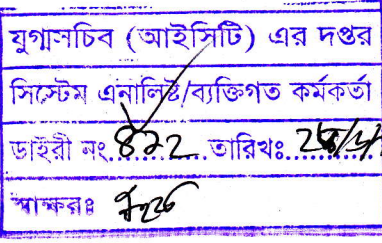 যুগ্মসচিব (আইসিটি) এর দপ্তর
সিস্টেম এনালিষ্ট/ব্যক্তিগত কর্মকর্তা
ডাইরী নং.৪৯২...তারিখঃ
স্বাক্ষরঃ